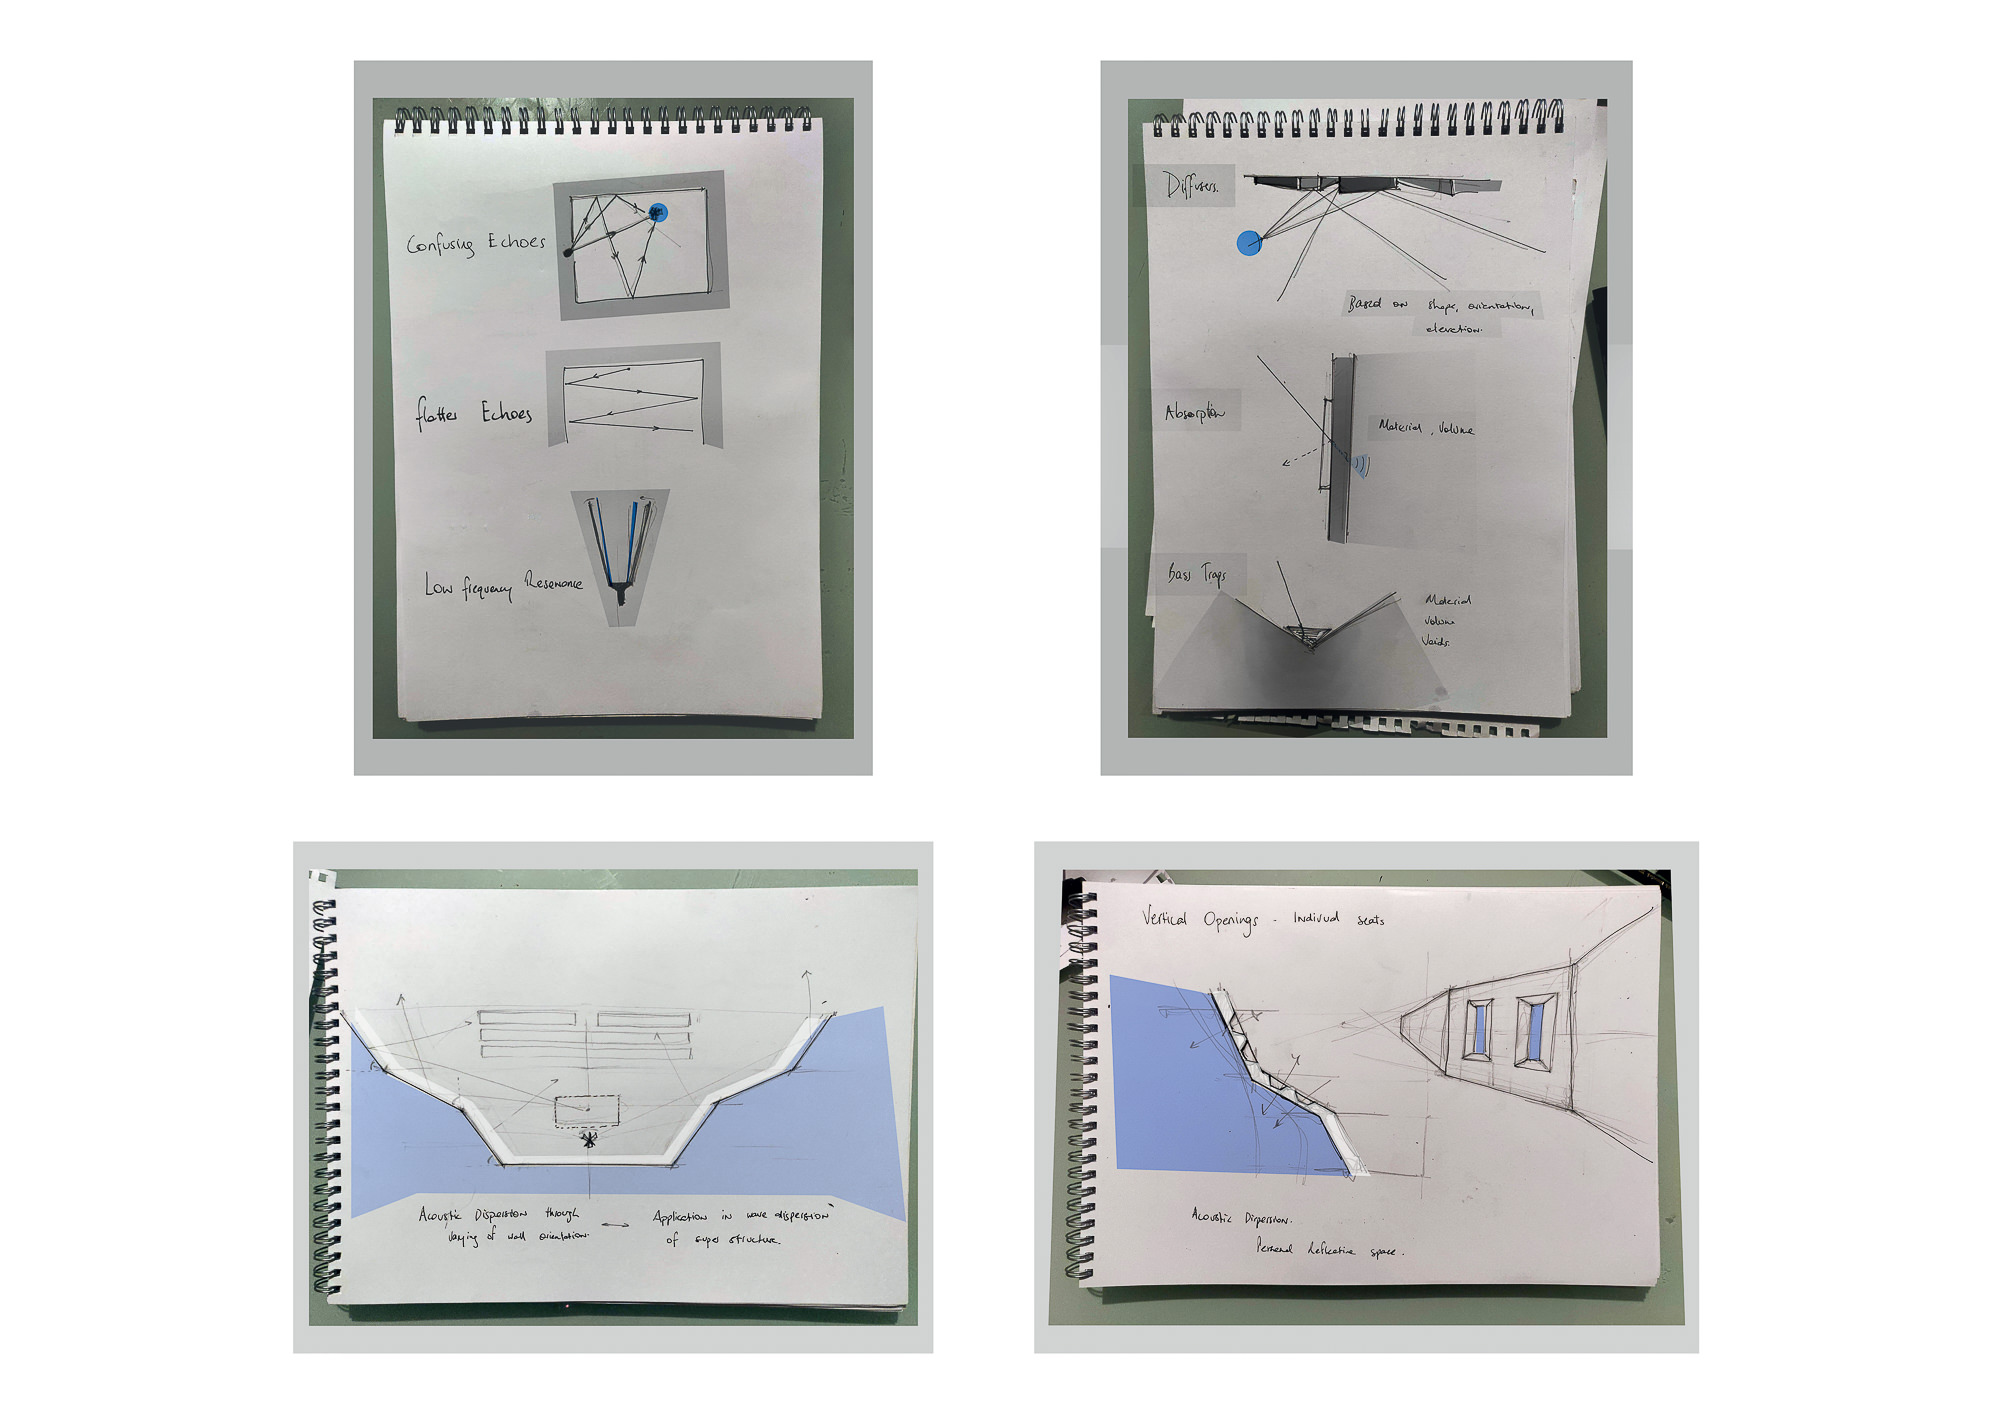 Confusing Echoes
flatter Echoes
Low frequency Resonance
Diffusers.
Based on shape, orientation,
elevation.
Absorption
Material, Volume
Bass Traps
Material
Volume
Voids.
Acoustic Dispersion through
varying of wall orientation.
Application in wave dispersion
of super structure.
Vertical Openings - Individ seats
Acoustic Dispersion.
Personal Reflective space.